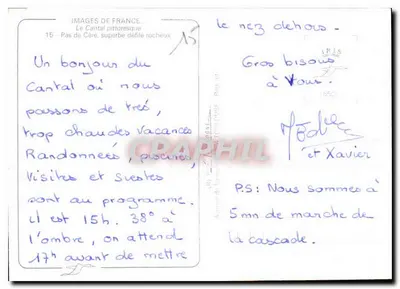 IMAGES DE FRANCE
Le Cantal pittoresque
15 - Pas de Cère, superbe défilé rocheux
15
Un bonjour du
Cantal où nous
passons de très,
trop chaudes vacances
Randonnées, piscine,
visites et siestes
sont au programme.
il est 15h. 38° à
l'ombre, on attend
17h avant de mettre
le nez dehors.
Gros bisous
à vous.
et Xavier
P.S: Nous sommes à
5mn de marche de
la cascade.
CPAPHIL